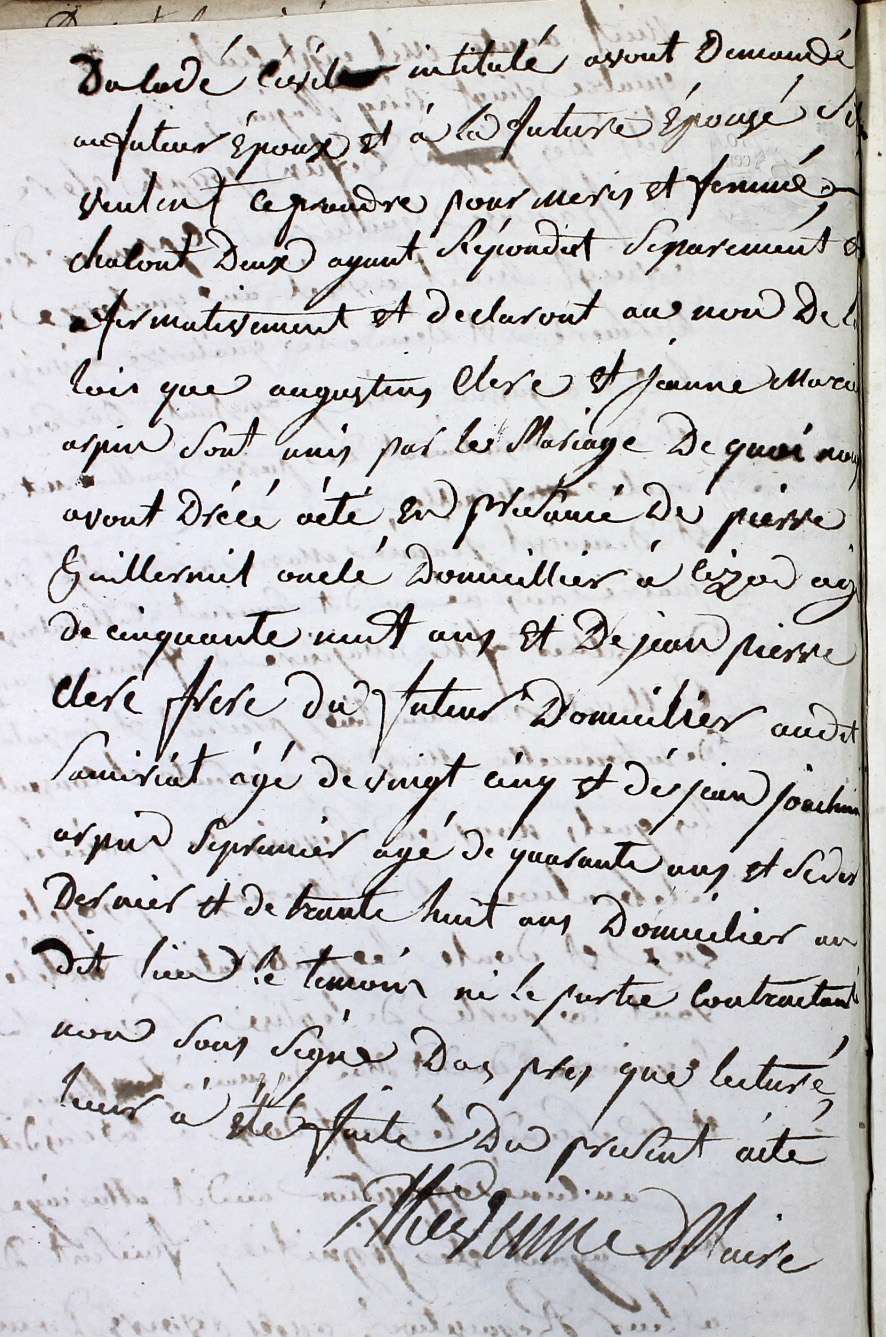 Du Codé Civil intitulé avont Demandé
au futeur Époux et á la future Épousé Si
veulent ce prandre pour meris et femmé
chalont Deux ayant Répondut Separemént et
afirmativement et declaront au nom De la
lois que augustins Clerc et jeanne Marie
arpin sont unis par le Mariage De quoi nous
avont Dréçé acté en presamcé De piérre
Guillermil onclé Domicillier á agé
de cinquante nuit ans et De jean pierre
Clerc frere du futeur Domicilier audit
Samiriat ágé de vingt cinq et dés jean joachim
arpin Sepremier agé de quarante ans et Seder
Dernier et de trante huit ans Domicilier au
dit lieu le temoin ni le partie Contractant
non sous Signe Das pres que lecturé
leur á eté faité Du present acté
Maire